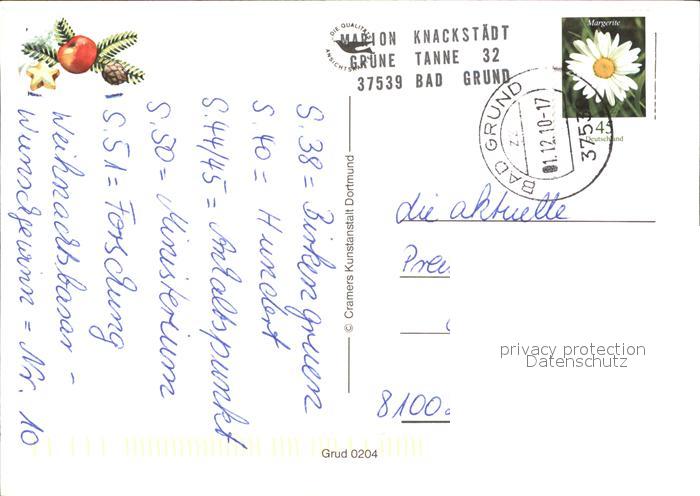 DIE QUALITÄTS
ANSICHTSKARTE
MARION KNACKSTÄDT
GRÜNE TANNE 32
37539 BAD GRUND
Margerite
45
Deutschland
BAD GRUND
-1.12.10-17
37539
S. 38 = Birkengruen
S. 40 = Hundert
S. 44/45 = Anhaltspunkt
S. 50 = Ministerium
S. 51 = Forschung
Weihnachtsbasar -
Wunschgewinn = Nr. 10
© Cramers Kunstanstalt Dortmund
die aktuelle
8100
privacy protection
Datenschutz
Grud 0204